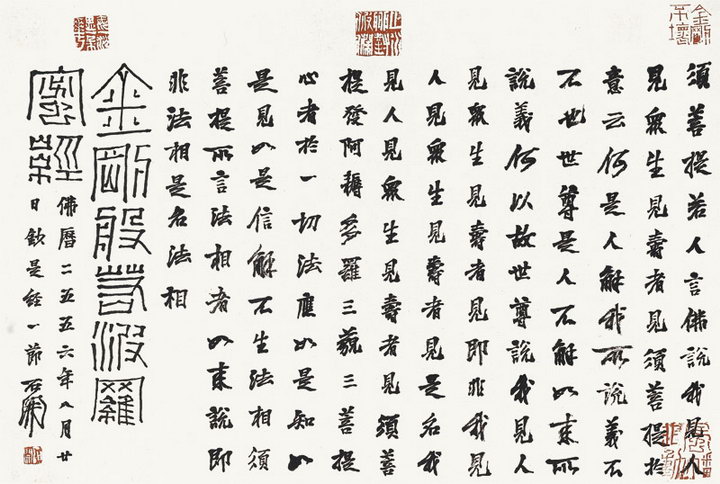 金剛不壞
須菩提若人言佛說我見人
見眾生見壽者見須菩提於
意云何是人解我所說義不
不也世尊是人不解如来所
說義何以故世尊說我見人
見眾生見壽者見即非我見
人見眾生見壽者見是名我
見人見眾生見壽者見須菩
提發阿耨多羅三藐三菩提
心者於一切法應如是知如
是見如是信解不生法相須
菩提所言法相者如来說即
非法相是名法相
金剛般若波羅
蜜經
佛曆二五五六年八月廿
日是經一節石開